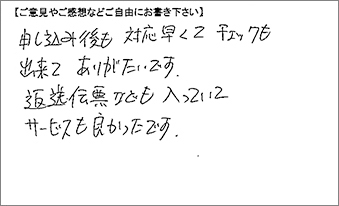 【ご意見やご感想などご自由にお書き下さい】
申し込み後も 対応早くて チェックも
出来て ありがたいです.
返送伝票なども 入っていて
サービスも良かったです.